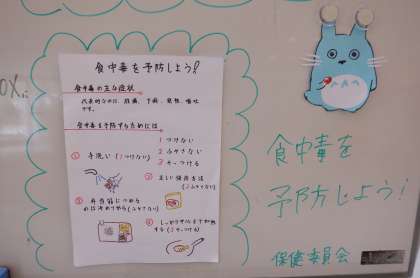 食中毒を予防しよう!
食中毒の主な症状
代表的なのは、腹痛、下痢、発熱、嘔吐
です。
食中毒を予防するためには
1 つけない
2 ふやさない
3 やっつける
① 手洗い(1つけない)
② 正しい保存方法
(2ふやさない)
③ お弁当箱につめる
のは冷めてから(2ふやさない)
④ しっかり中心まで加熱
する(3やっつける)
食中毒を
予防しよう!
保健委員会